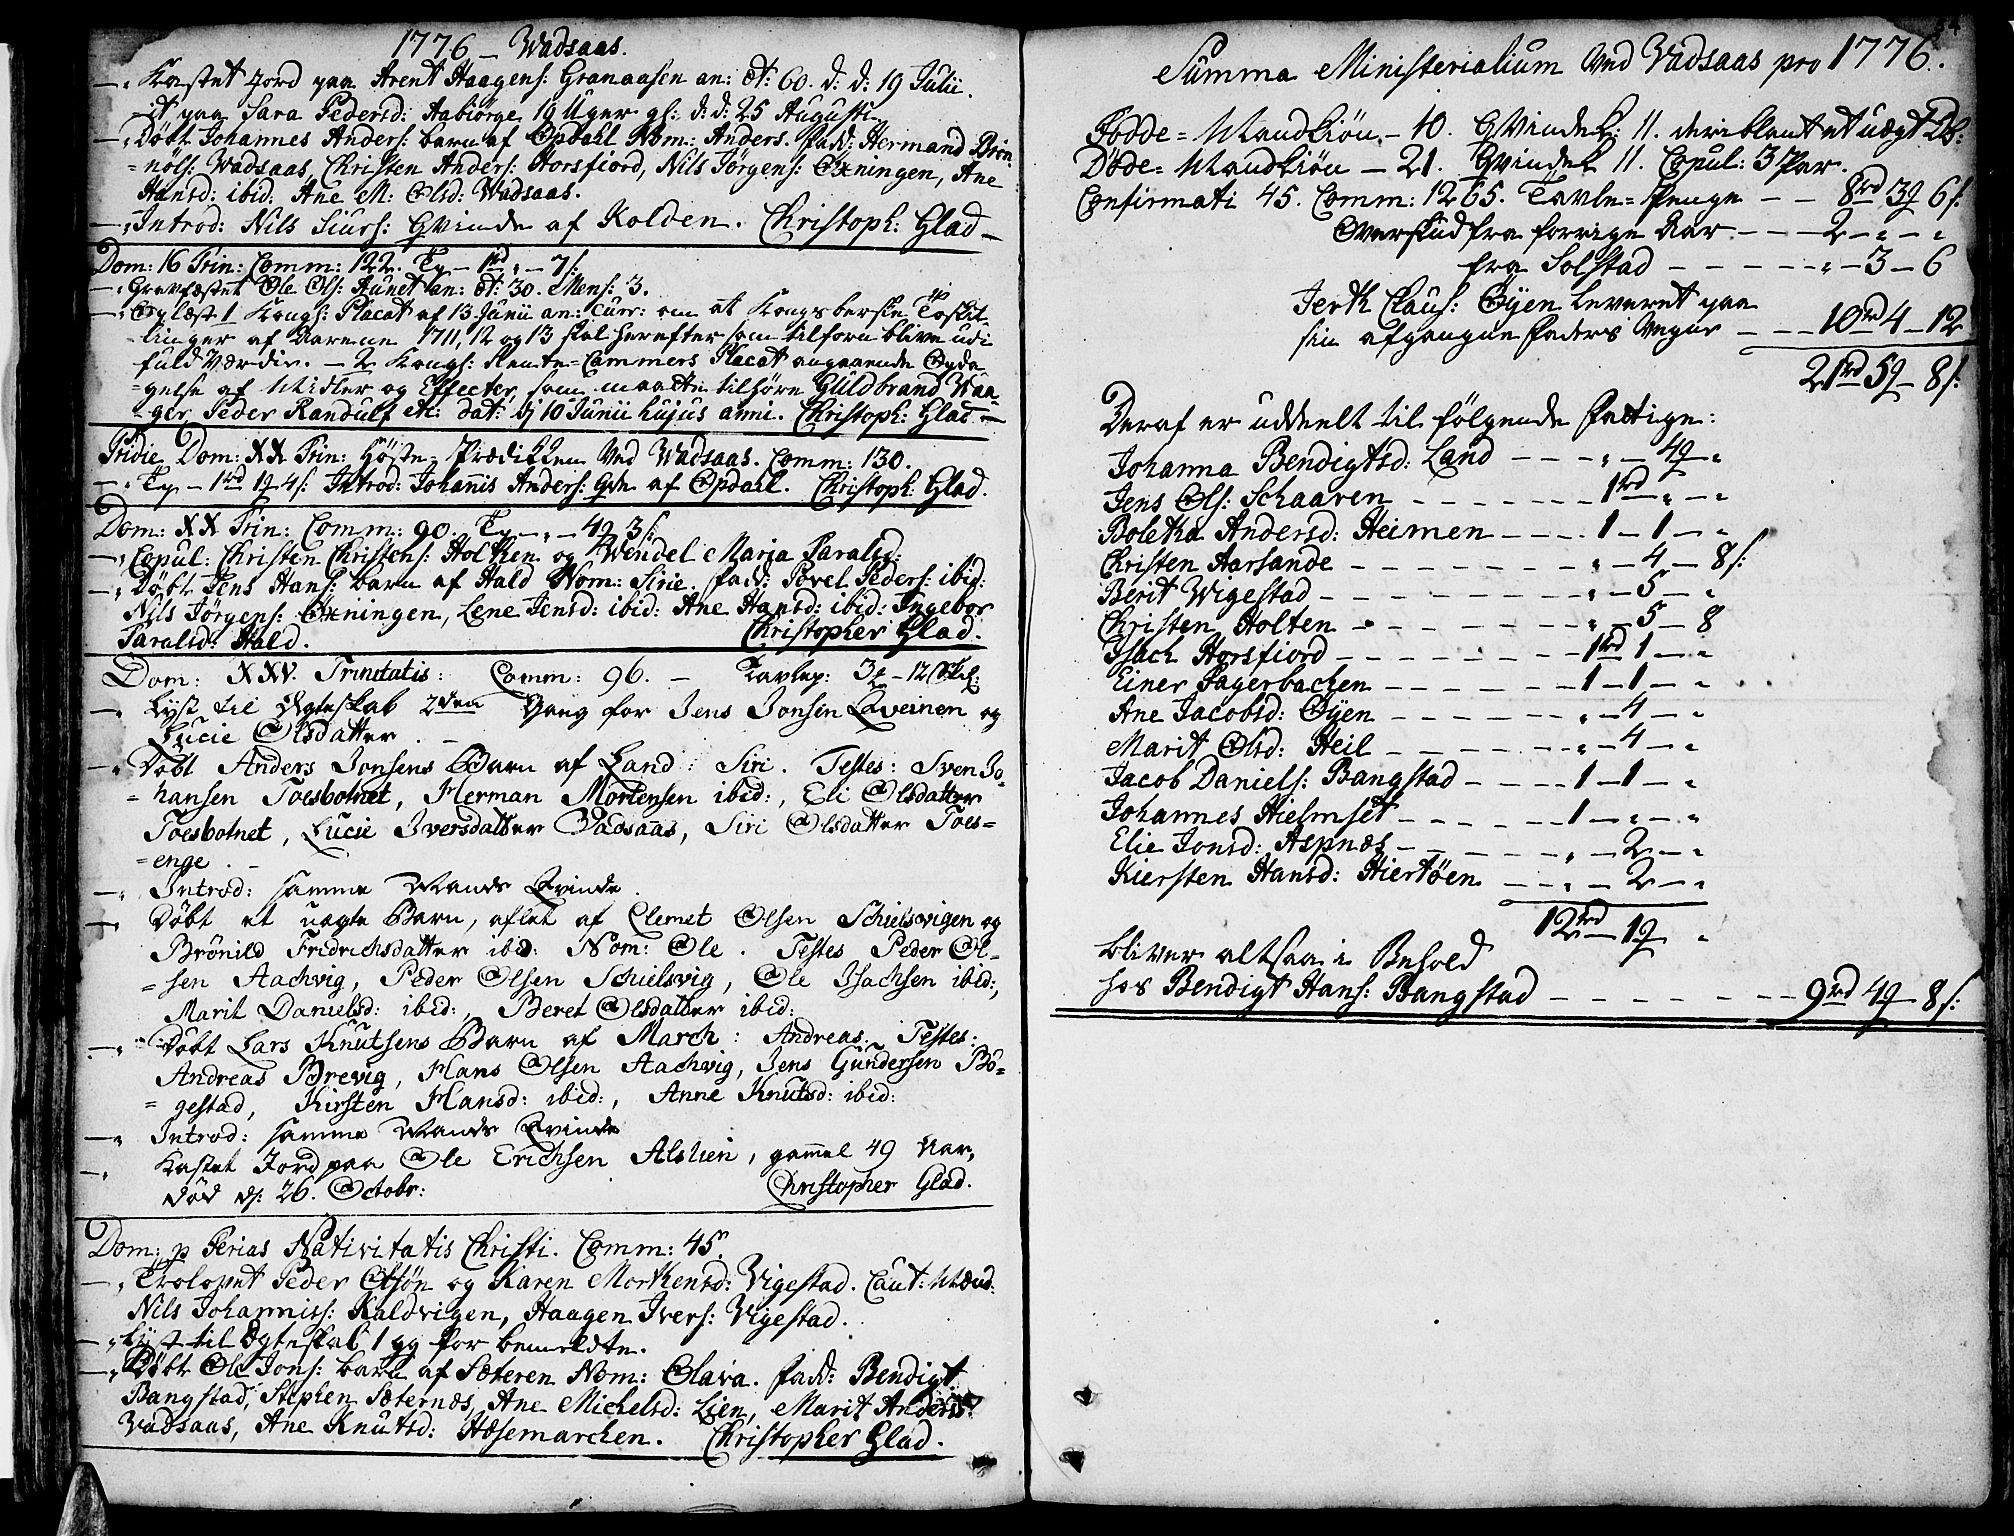 1776 – Wadsaas.
–„ Kastet Jord paa Arent Haagens: Granaasen an: æt: 60. d: d: 19 Julii.
–it paa Sara Pedersd: Aabiörge 19 Uger gl: d: d: 25 Augusti.
–„ Döbt Johannes Anders: barn af Opdahl Nom: Anders. fadd: Hermand Brön-
=nöls: Wadsaas, Christen Anders: Horsfiord, Nils Jörgens: Öxningen, Ane
Hansd: ibid: Ane M: Olsd: Wadsaas.
–„ Introd: Nils Siurs: Qvinde af Kolden. Christoph: Glad –
Dom: 16 Trin: Comm: 122. Tp – 1rd „ – 7 s:
–„ Gravfæstet Ole Ols: Aunet an: æt: 30. Mens: 3.
–„ Oplæst 1 Kongs: Placat af 13 Junii an: curr: om at Kongsberske Toskil-
linger af Aarene 1711, 12 og 13 skal herefter som tilforn blive udi
fuld Værdie. – 2 Kongs: Rente=Cammers Placat angaaende Opda-
=gelse af Midler og Effecter, som maatte tilhöre Guldbrand Waa-
=ger Peder Randulf etc: dat: 10 Junii hujus anni. Christoph: Glad –
Pridie Dom: XX Trin: Höste=Prædikken Ved Wadsaas. Comm: 130.
–„ Tp – 1rd 1q 4 s: Introd: Johanis Anders: Qde af Opdahl. Christoph: Glad.
Dom: XX Trin: Comm: 90. Tp – „ – 4q 3 s:
–„ Copul: Christen Christens: Holthen og Wendel Maria Taralsd:
–„ Döbt Jens Hans: barn af Hald Nom: Sirie. fadd: Povel Peders: ibid:
Nils Jörgens: Öxningen, Lene Jensd: ibid: Ane Hansd: ibid: Ingebor
Taralsd: Hald. Christopher Glad.
Dom: XXV. Trinitatis: Comm: 96. – Tavlep: 3q – 12 Skl:
–„ Lyst til Ægteskab 2den Gang for Jens Jonsen Qveinen og
Lucie Olsdatter. –
–„ Döbt Anders Jonsens Barn af Land: Siri. Testes: Sven Jo-
=hansen Toesbotnet, Herman Mortensen ibid:, Eli Olsdatter
Toesbotnet, Lucie Iversdatter Vadsaas, Siri Olsdatter Toes=
=enge. –
–„ Introd: samme Mands Qvinde.
–„ Döbt et uægte Barn, aflet af Clemet Olsen Schielsvigen og
Brönild Fridrichsdatter ibid: Nom: Ole. Testes Peder Ol-
=sen Aachvig, Peder Olsen Schielsvig, Ole Isachsen ibid:,
Marit Danielsd: ibid:, Beret Olsdatter ibid:
–„ Döbt Lars Knutsens Barn af March: Andreas. Testes:
Andreas Brevig, Hans Olsen Aachvig, Jens Gundersen Bö-
=gestad, Kirsten Hansd: ibid:, Anne Knutsd: ibid:
–„ Introd: samme Mands Qvinde
–„ Kastet Jord paa Ole Erichsen Alslien, gammel 49 Aar,
död d: 26. Octobr: Christopher Glad.
Dom: p Ferias Nativitatis Christi. Comm: 45.
–„ Trolovet Peder Olsön og Karen Morthensd: Vigestad. Caut: Mænd:
Nils Johanniss: Kaldvigen, Haagen Ivers: Vigestad.
–„ Lyst til Ægteskab 1 gg for bemeldte.
–„ Döbt Ole Jons: barn af Sæteren Nom: Olava. fadd: Bendigt
Bangstad, Stephen Sæternæs, Ane Michelsd: Lien, Marit Andersd:
Vadsaas, Ane Knutsd: Hæsemarchen. Christopher Glad.
Summa Ministerialium Ved Vadsaas pro 1776.
Födde = Mandkiön – 10. Qvindek: 11. deriblant et uægt Db:
Döde = Mandkiön – 21. Qvindek 11. Copul: 3 Par.
Confirmati 45. Comm: 1265. Tavle=Penge – – 8rd 3q 6 s:
Overskud fra forrige Aar – – – 2 – „ – „
fra Solstad – – – – – „ – 3 – 6
Jerk Claus: Öyen leveret paa
sin afgangne faders Vegne – – – 10rd 4 – 12
21rd 5q – 8 s:
Deraf er uddeelt til fölgende fattige:
Johanna Bendigtsd: Land – – – „ – 4q – „
Jens Ols: Schaaren – – – – – – – 1rd „ – „
Boletha Andersd: Heimen – – – – 1 – 1 – „
Christen Aarsande – – – – – – – „ – 4 – 8 s:
Berit Wigestad – – – – – – – – „ – 5 – „
Christen Holten – – – – – – – „ – 5 – 8
Isach Horsfiord – – – – – – – – 1rd 1 – „
Einer Fagerbachen – – – – – – 1 – 1 – „
Ane Jacobsd: Öyen – – – – – – „ – 4 – „
Marit Olsd: Heil – – – – – – – „ – 4 – „
Jacob Daniels: Bangstad – – – – 1 – 1 – „
Johannes Hielmset – – – – – – 1 – „ – „
Elie Jonsd: Aspnæs – – – – – – „ – 2 – „
Kiersten Hansd: Hiertöen – – „ – 2 – „
12rd – 1q – „
bliver altsaa i Behold
hos Bendigt Hans: Bangstad – – – – – – – 9rd 4q – 8 s: